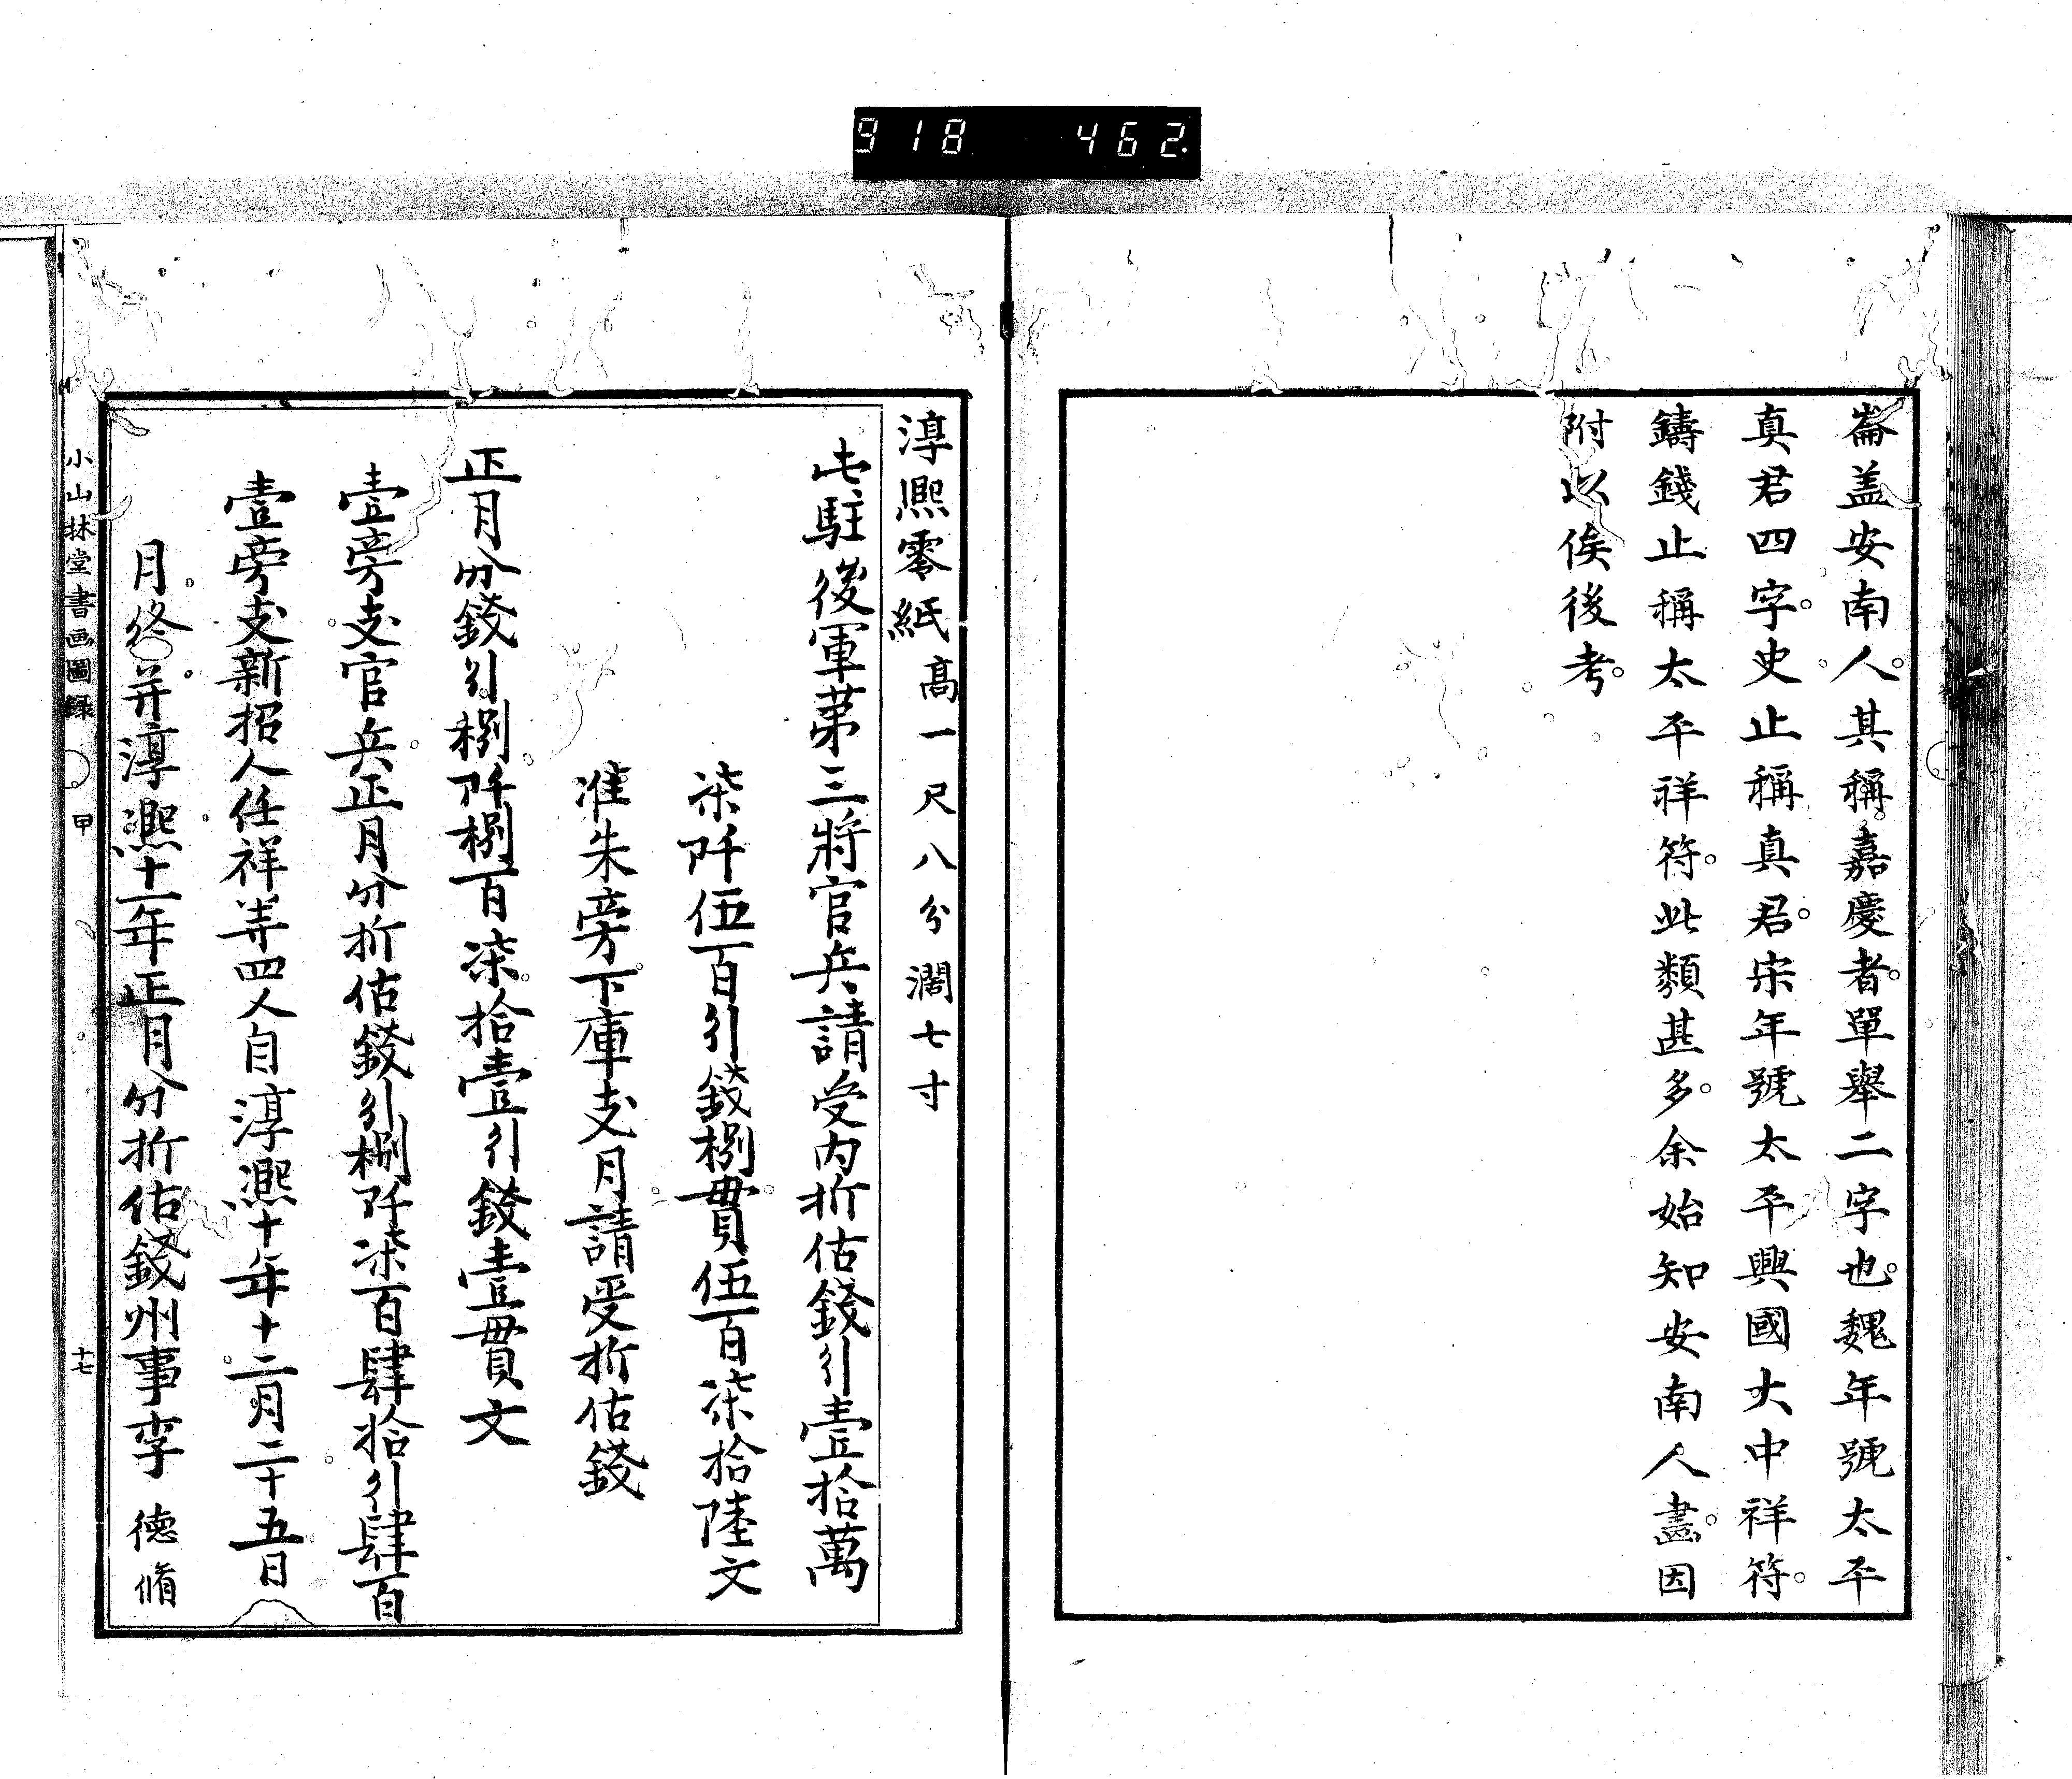 918 462
崙盖安南人。其稱嘉慶者。單舉二字也。魏年號太平
真君四字。史止稱真君。宋年號太平興國大中祥符。
鑄錢止稱太平祥符。此類甚多。余始知安南人畫。因
附以俟後考。
淳熙零紙 高一尺八分 濶七寸
屯駐後軍第三將官兵請受内折估錢引壹拾萬
柒阡伍百引錢捌貫伍百柒拾陸文
准朱旁下庫支月請受折估錢
正月分錢引捌阡捌百柒拾壹引錢壹貫文
壹旁支官兵正月分折估錢引捌阡柒百肆拾引肆百
壹旁支新招人任祥等四人自淳熙十年十二月二十五日
月終并淳熙十一年正月分折估錢州事李 德脩
小山林堂書画圖録 甲 十七